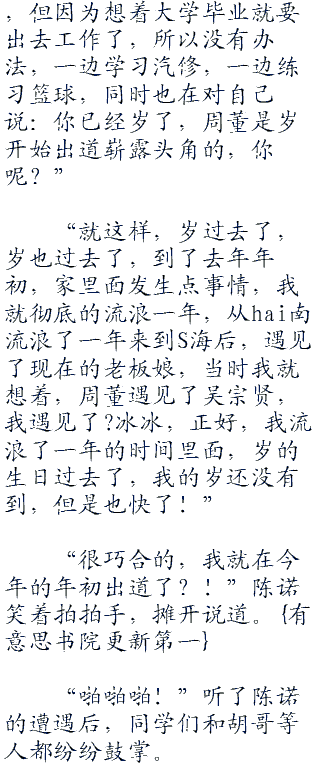 ，但因为想着大学毕业就要
出去工作了，所以没有办
法，一边学习汽修，一边练
习篮球，同时也在对自己
说：你已经岁了，周董是岁
开始出道崭露头角的，你
呢？”
“就这样，岁过去了，
岁也过去了，到了去年年
初，家里面发生点事情，我
就彻底的流浪一年，从hai南
流浪了一年来到S海后，遇见
了现在的老板娘，当时我就
想着，周董遇见了吴宗贤，
我遇见了?冰冰，正好，我流
浪了一年的时间里面，岁的
生日过去了，我的岁还没有
到，但是也快了！”
“很巧合的，我就在今
年的年初出道了？！”陈诺
笑着拍拍手，摊开说道。{有
意思书院更新第一}
“啪啪啪！”听了陈诺
的遭遇后，同学们和胡哥等
人都纷纷鼓掌。